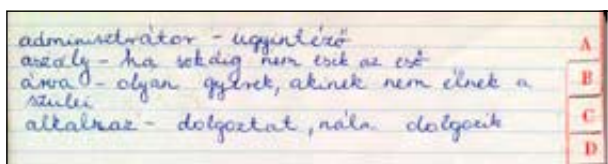 adminisztrátor - ügyintéző
aszály - ha sokáig nem esik az eső
árva - olyan gyerek, akinek nem élnek a
szülei
alkalmaz - dolgoztat, nála dolgozik
A
B
C
D